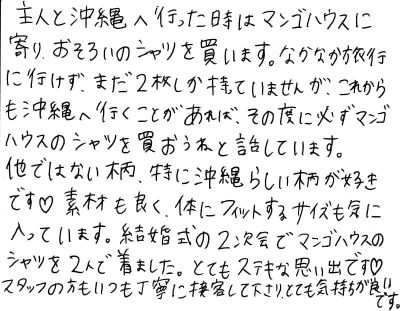 主人と沖縄へ行った時はマンゴハウスに
寄り、おそろいのシャツを買います。なかなか旅行
に行けず、まだ2枚しか持ていませんが、これから
も沖縄へ行くことがあれば、その度に必ずマンゴ
ハウスのシャツを買おうねと話しています。
他ではない柄、特に沖縄らしい柄が好き
です♡ 素材も良く、体にフィットするサイズも気に
入っています。結婚式の2次会でマンゴハウスの
シャツを2人で着ました。とてもステキな思い出です♡
スタッフの方もいつも丁寧に接客して下さり、とても気持ちが良い
です。